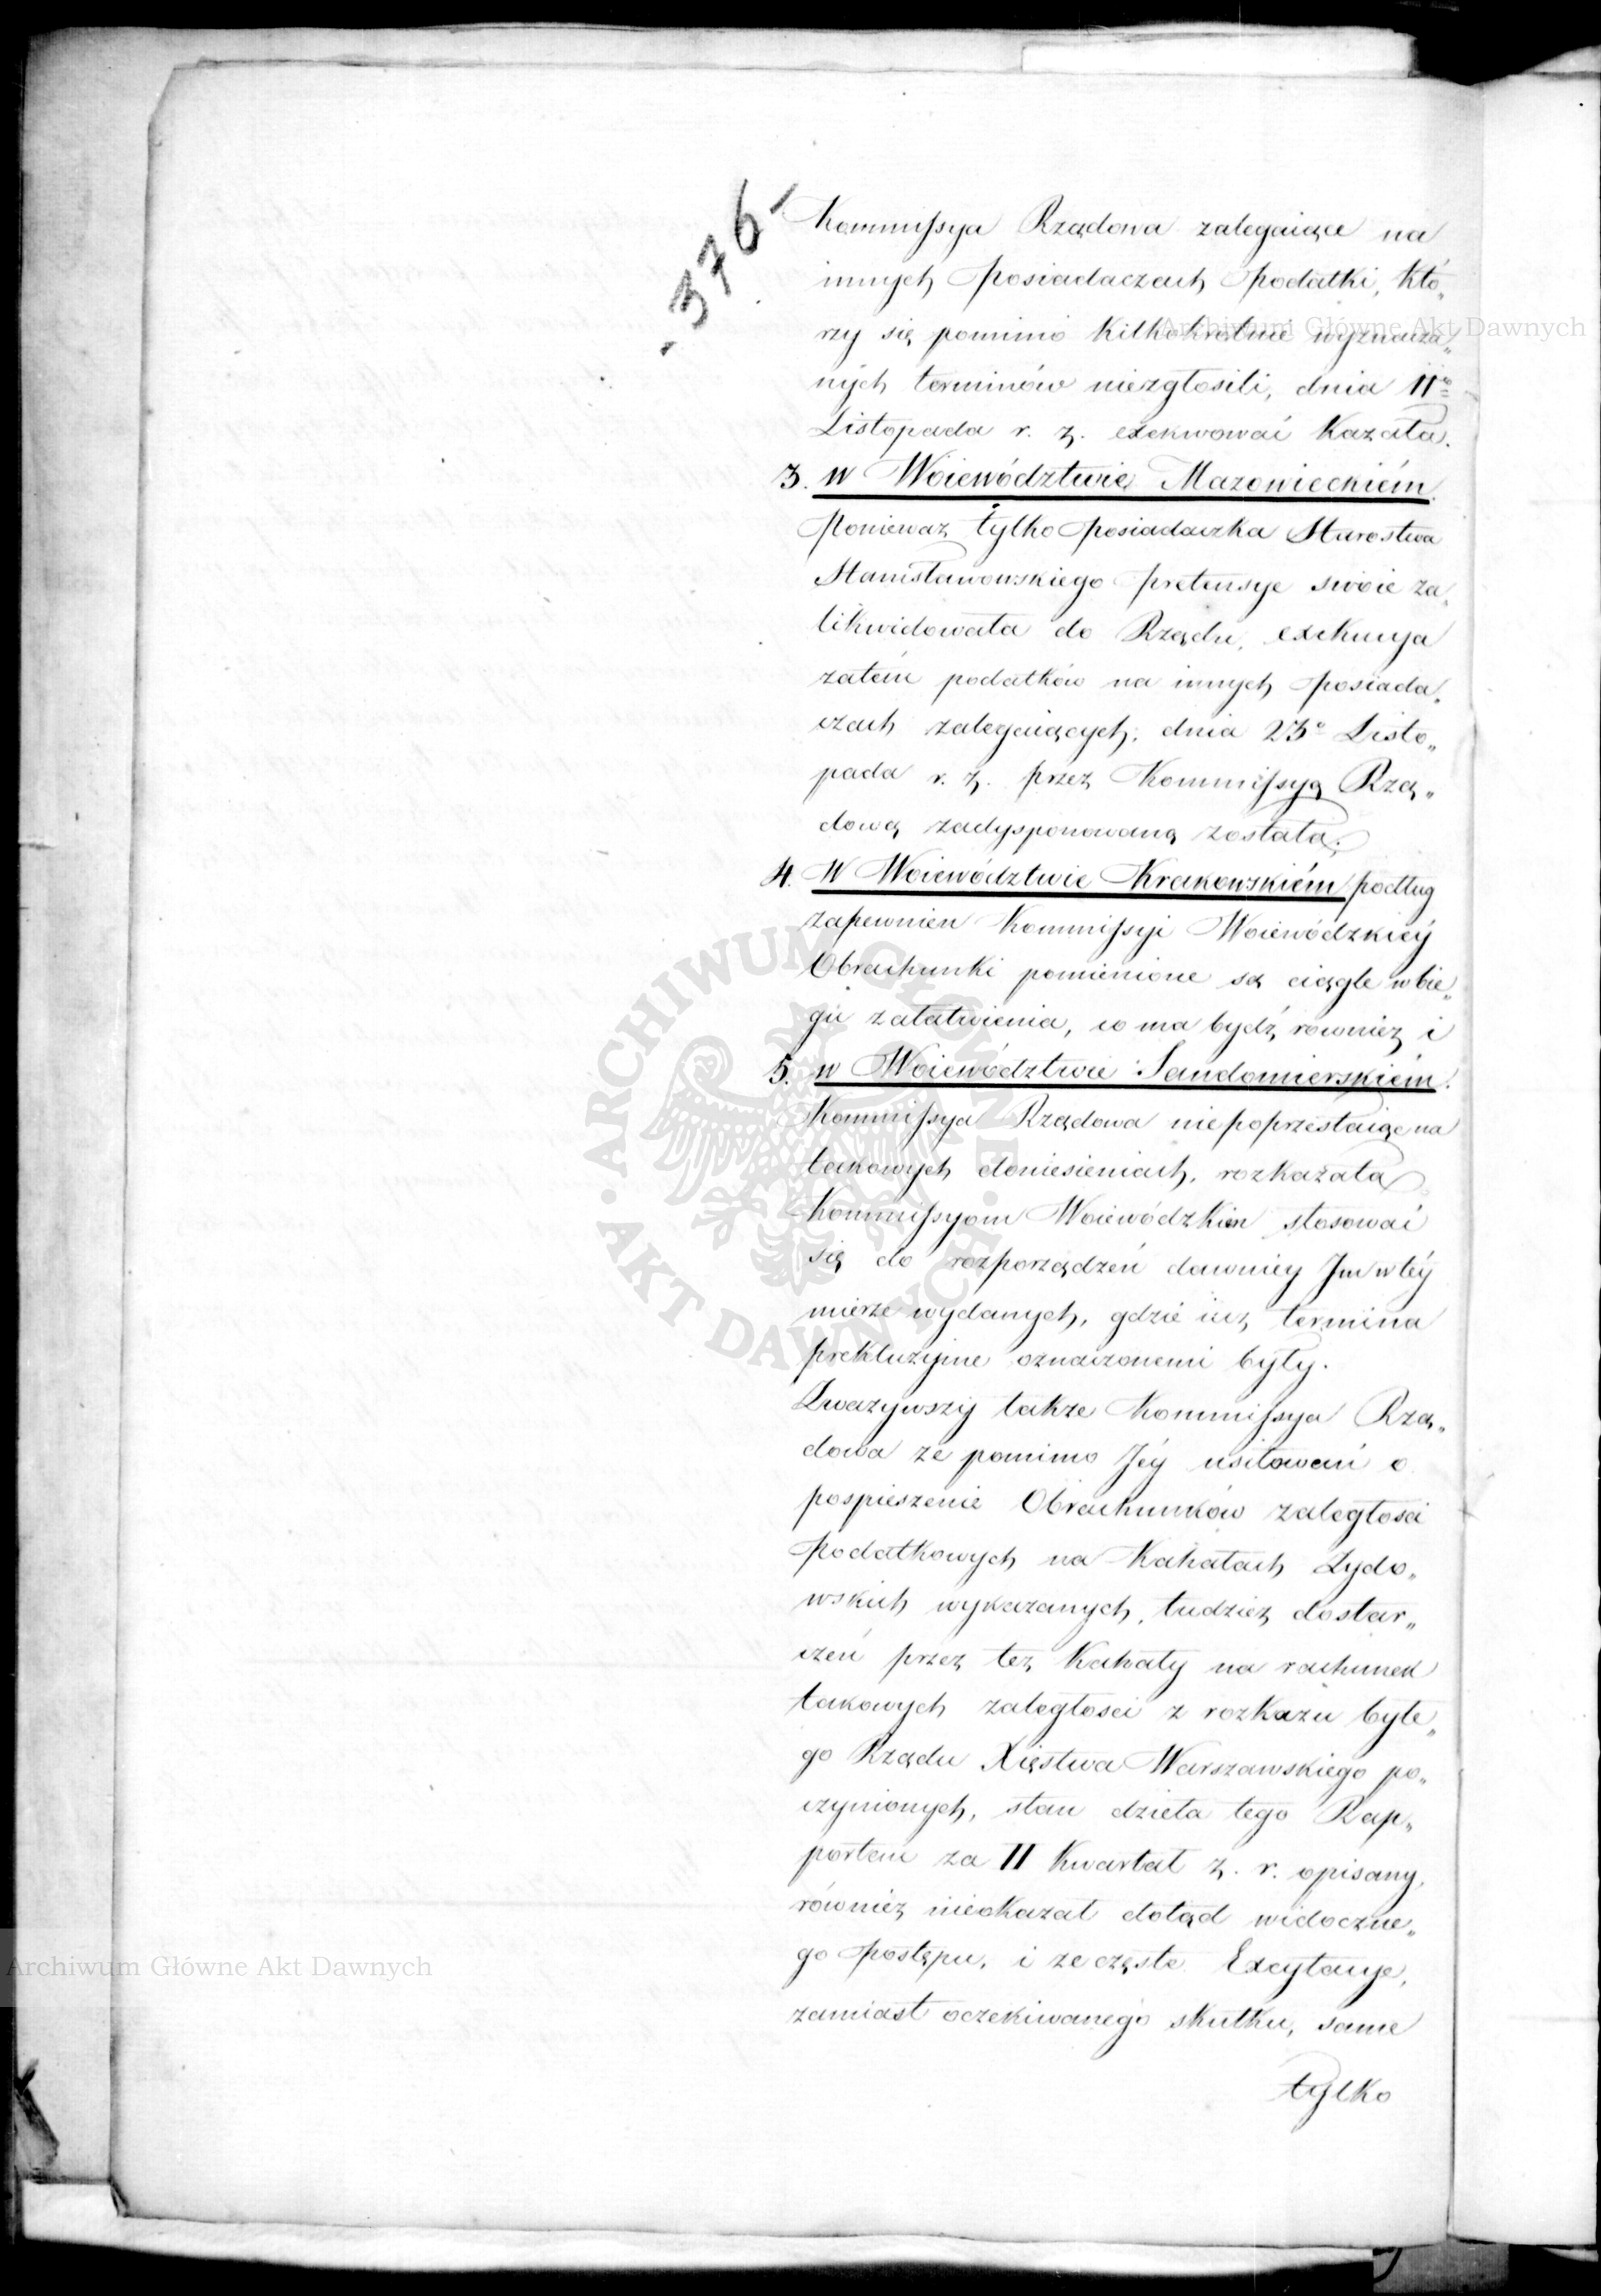 - 376 -
Kommissya Rządowa zalegaiące na
innych posiadaczach podatki, któ„
rzy się pomimo kilkokrotnie wyznacza„
nych terminów niezgłosili, dnia 11º
Listopada r. z. exekwować kazała.
3. w Woiewództwie Mazowieckiém.
ponieważ tylko posiadaczka Starostwa
Stanisławowskiego pretensye swoie za„
likwidowała do Rządu, exekucya
zatém podatków na innych posiada„
czach zalegaiących, dnia 23º Listo„
pada r. z. przez Kommissyą Rzą„
dową zadysponowaną została.
4. W Woiewództwie Krakowskiém podług
zapewnień Kommissyi Woiewódzkiéy
Obrachunki pomienione są ciągle w bie„
gu załatwienia, co ma bydź również i
5. w Woiewództwie Sandomierskiém.
Kommissya Rządowa niepoprzestaiąc na
takowych doniesieniach, rozkazała
Kommissyom Woiewódzkim stosować
się do rozporządzeń dawniey Im w téy
mierze wydanych, gdzie iuż termina
prekluzyine oznaczonemi były.
Zważywszy także Kommissya Rzą„
dowa że pomimo Jéy usiłowań o
pospieszenie Obrachunków zaległości
podatkowych na Kahałach Żydo„
wskich wykazanych, tudzież dostar„
czeń przez też Kahały na rachunek
takowych zaległości z rozkazu byłe„
go Rządu Xięstwa Warszawskiego po„
czynionych, stan dzieła tego Rap„
portem za II Kwartał z. r. opisany,
również nieokazał dotąd widoczne„
go postępu, i że częste Excytacye,
zamiast oczekiwanego skutku, same
tylko
Archiwum Główne Akt Dawnych
ARCHIWUM GŁÓWNE AKT DAWNYCH
Archiwum Główne Akt Dawnych